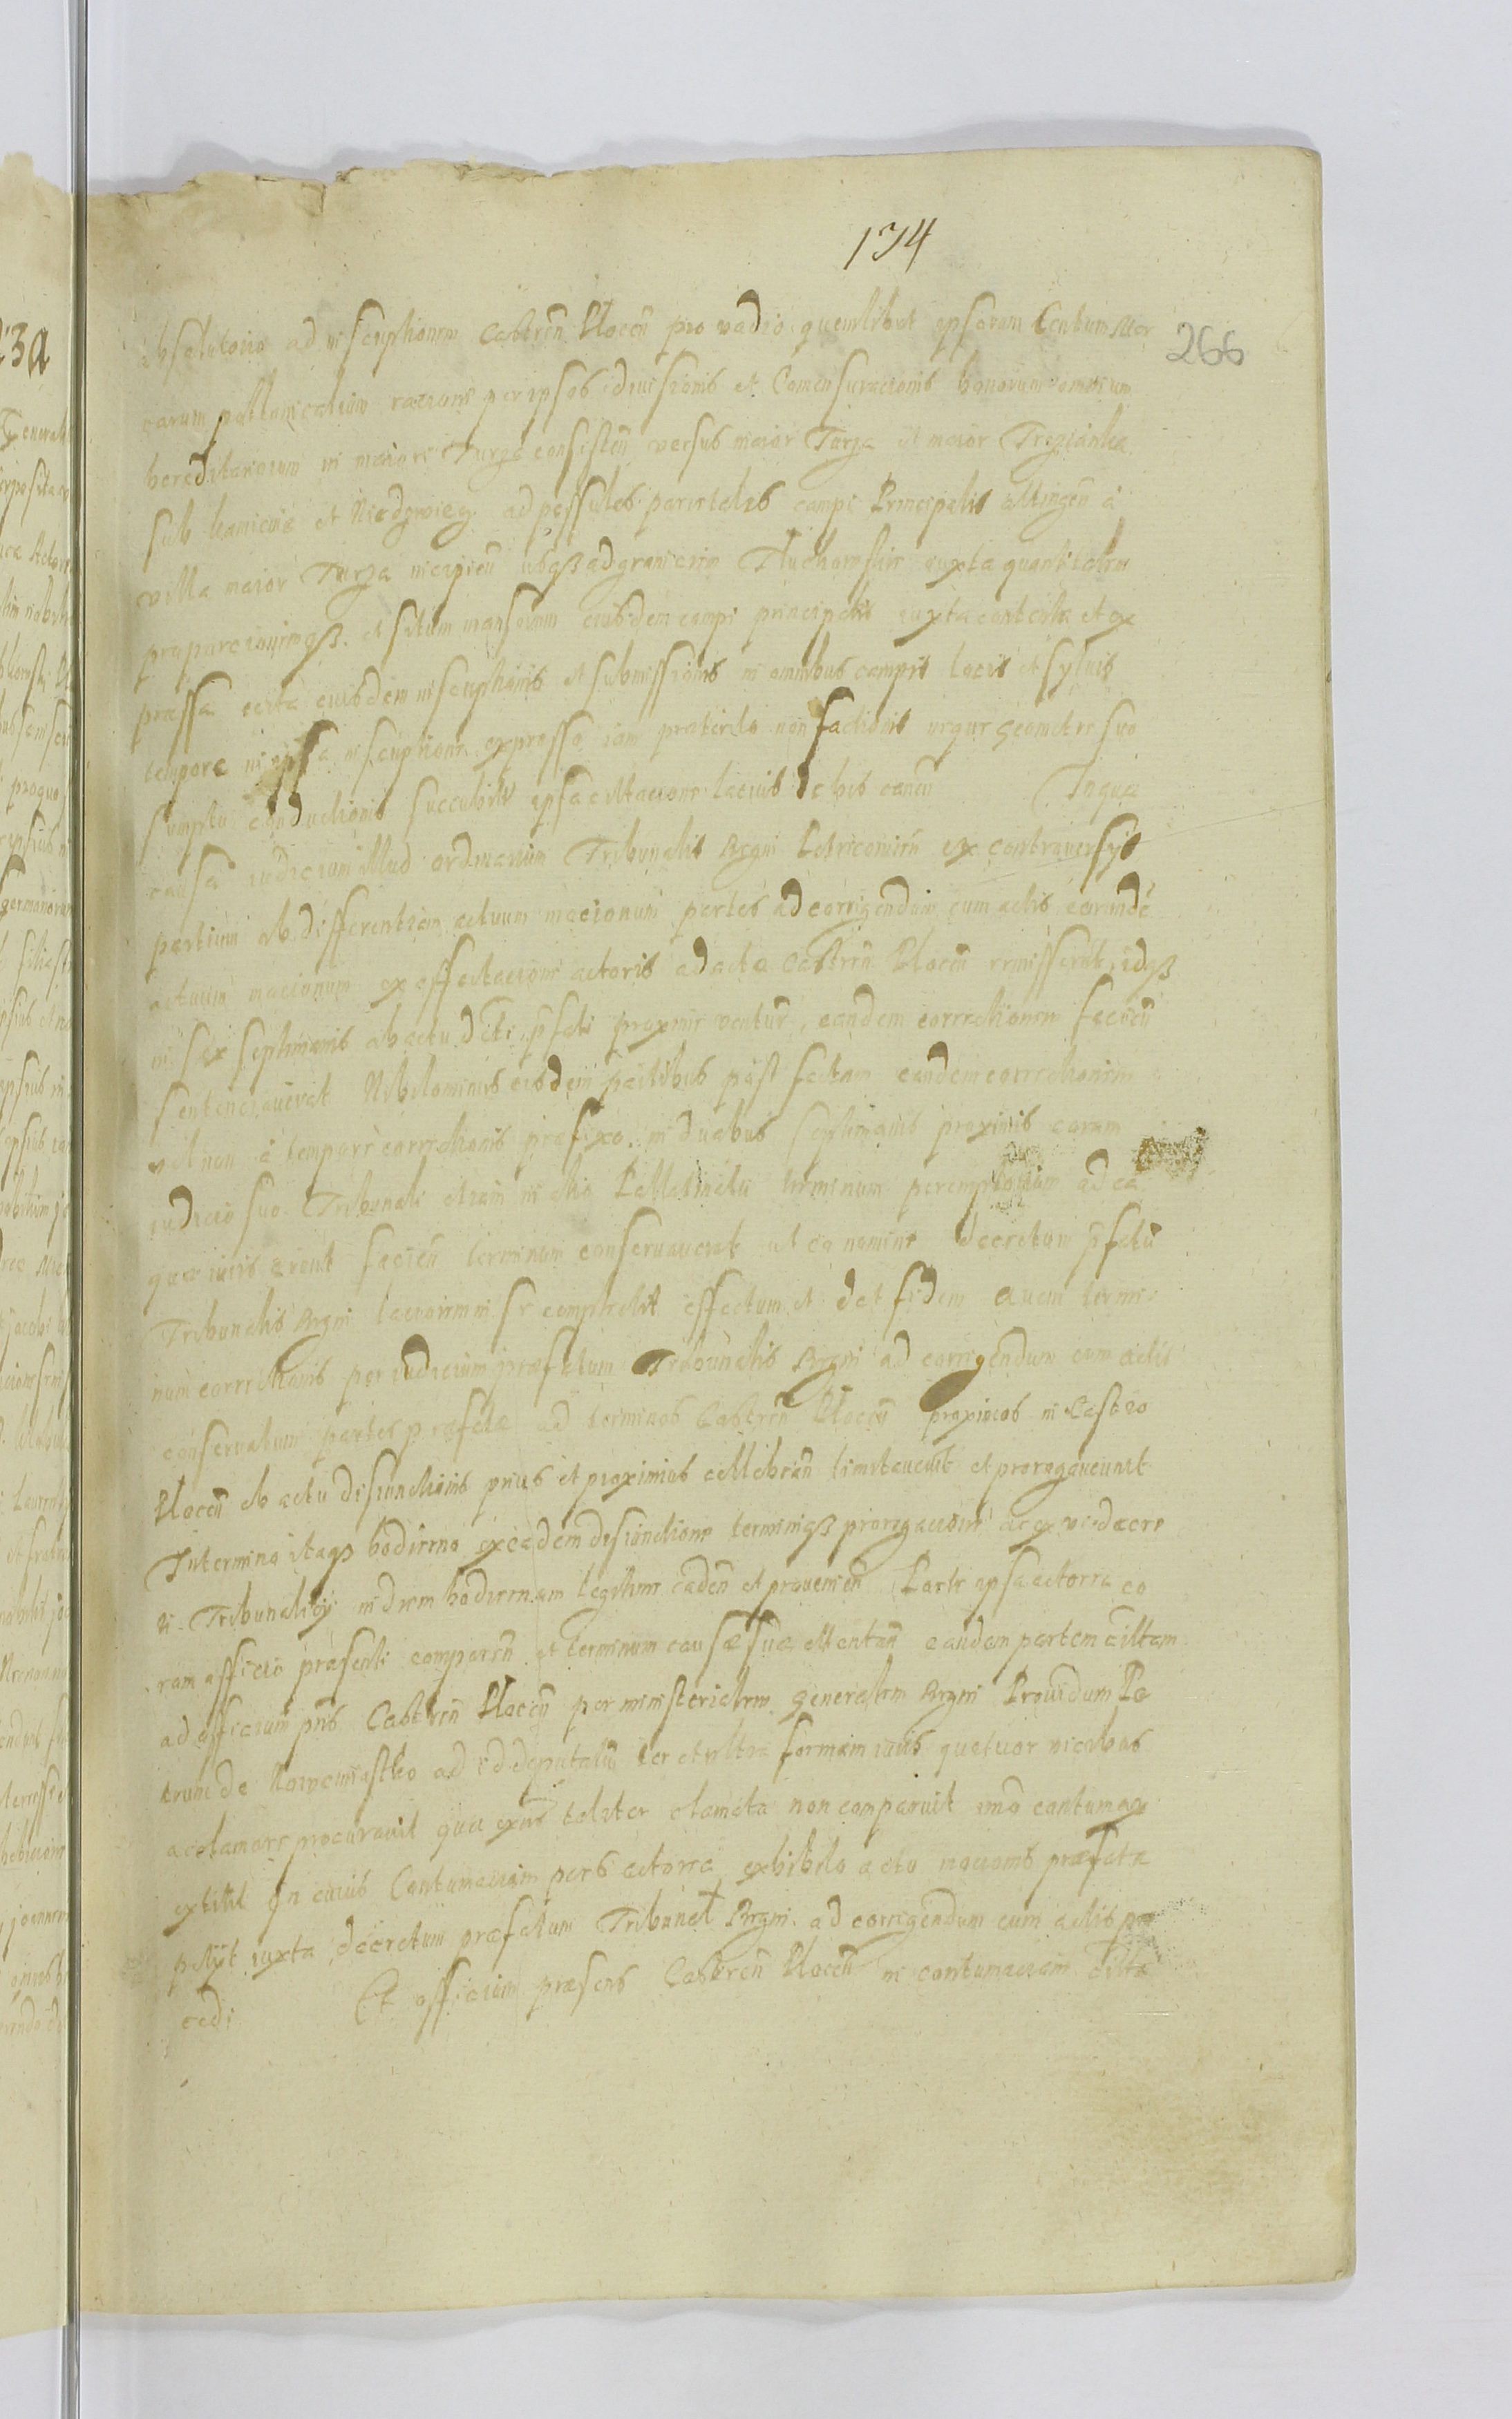 134
266
absolutoria ad inscriptionem Castren Plocen pro vadio quemlibet ipsorum Centum Mar
carum pollonicalium racione per ipsos idivisionis et Comensuracionis bonorum omnium
hereditariorum in maiori Turza consisten versus maior Turza et maior Trzcianka
sub kamicuie et Niedzwicz ad possules parietales campi Principalis attingen a
villa maior Turza incipien usqß ad graniciem Pluchowskie iuxta quantitatem
proporcionimqß et situm mansorum eiusdem campi principalis iuxta contenta et ex
pressa certa eiusdem inscriptionis et submissionis in omnibus campis locis et sylvis
tempore in ipsa inscriptione expresso iam praterito non factionis neque Geometre suo
sumptu conductionis succubite ipsa citacione lacius de his canen Inqua
causa iudicium illud ordinarium Tribunalis Regni Petricovien ex controversys
partium ob differentiam actuum nocionum partes ad corrigendum cum actis earunde
actuum nocionum ex affectacione actoris ad acta Castren Plocen remisserat, idqß
in sex septimanis ab actu dcti pfati proxime ventur, eandem correctionem facien
sentenciaverat Nihilominus eisdem partibus post factam eandem correctionem
vel non a tempore correctionis praefixo in duabus septimanis proximis coram
iudicio suo Tribunali etiam in alio Pallatinatu terminum peremptorium ad ea
quae iuris erunt facien terminum conservaverat ut ea nomine decretum pfatu
Tribunalis Regni lacius in se complectit effectum et dat fidem Quem termi
num correctionis per iudicium praefatum Tribunalis Regni ad corrigendum cum actis
conservatum partes praefatae ad terminos Castren Plocen proximos in Castro
Plocen ab actu disiunctionis prius et proximius cellebran limitaverunt et prorogaverunt
Intermino itaqß hodierno ex eadem disiunctione terminiqß prorogacione ac ex vi decre
ti Tribunalicy in diem hodiernam legitime caden et provenien Parte ipsa actorea co
ram officio praesenti comparen et terminum causae suae attentan eandem partem cittam
ad officium pns Castren Plocen per ministerialem Generalem Regni Providum Pe
trum de Nowemiastko ad id deputatu ter et ultra formam iuris quatuor vicibus
acclamare procuravit quae ipsa taliter clamata non comparuit imo contumax
extitit In cuius Contumaciam pars actorea exhibito acto nocionis praefata
petijt iuxta decretum praefatum Tribunal Regni ad corrigendum cum actis pro
cedi Et officium praesens Castren Plocen in contumaciam citta